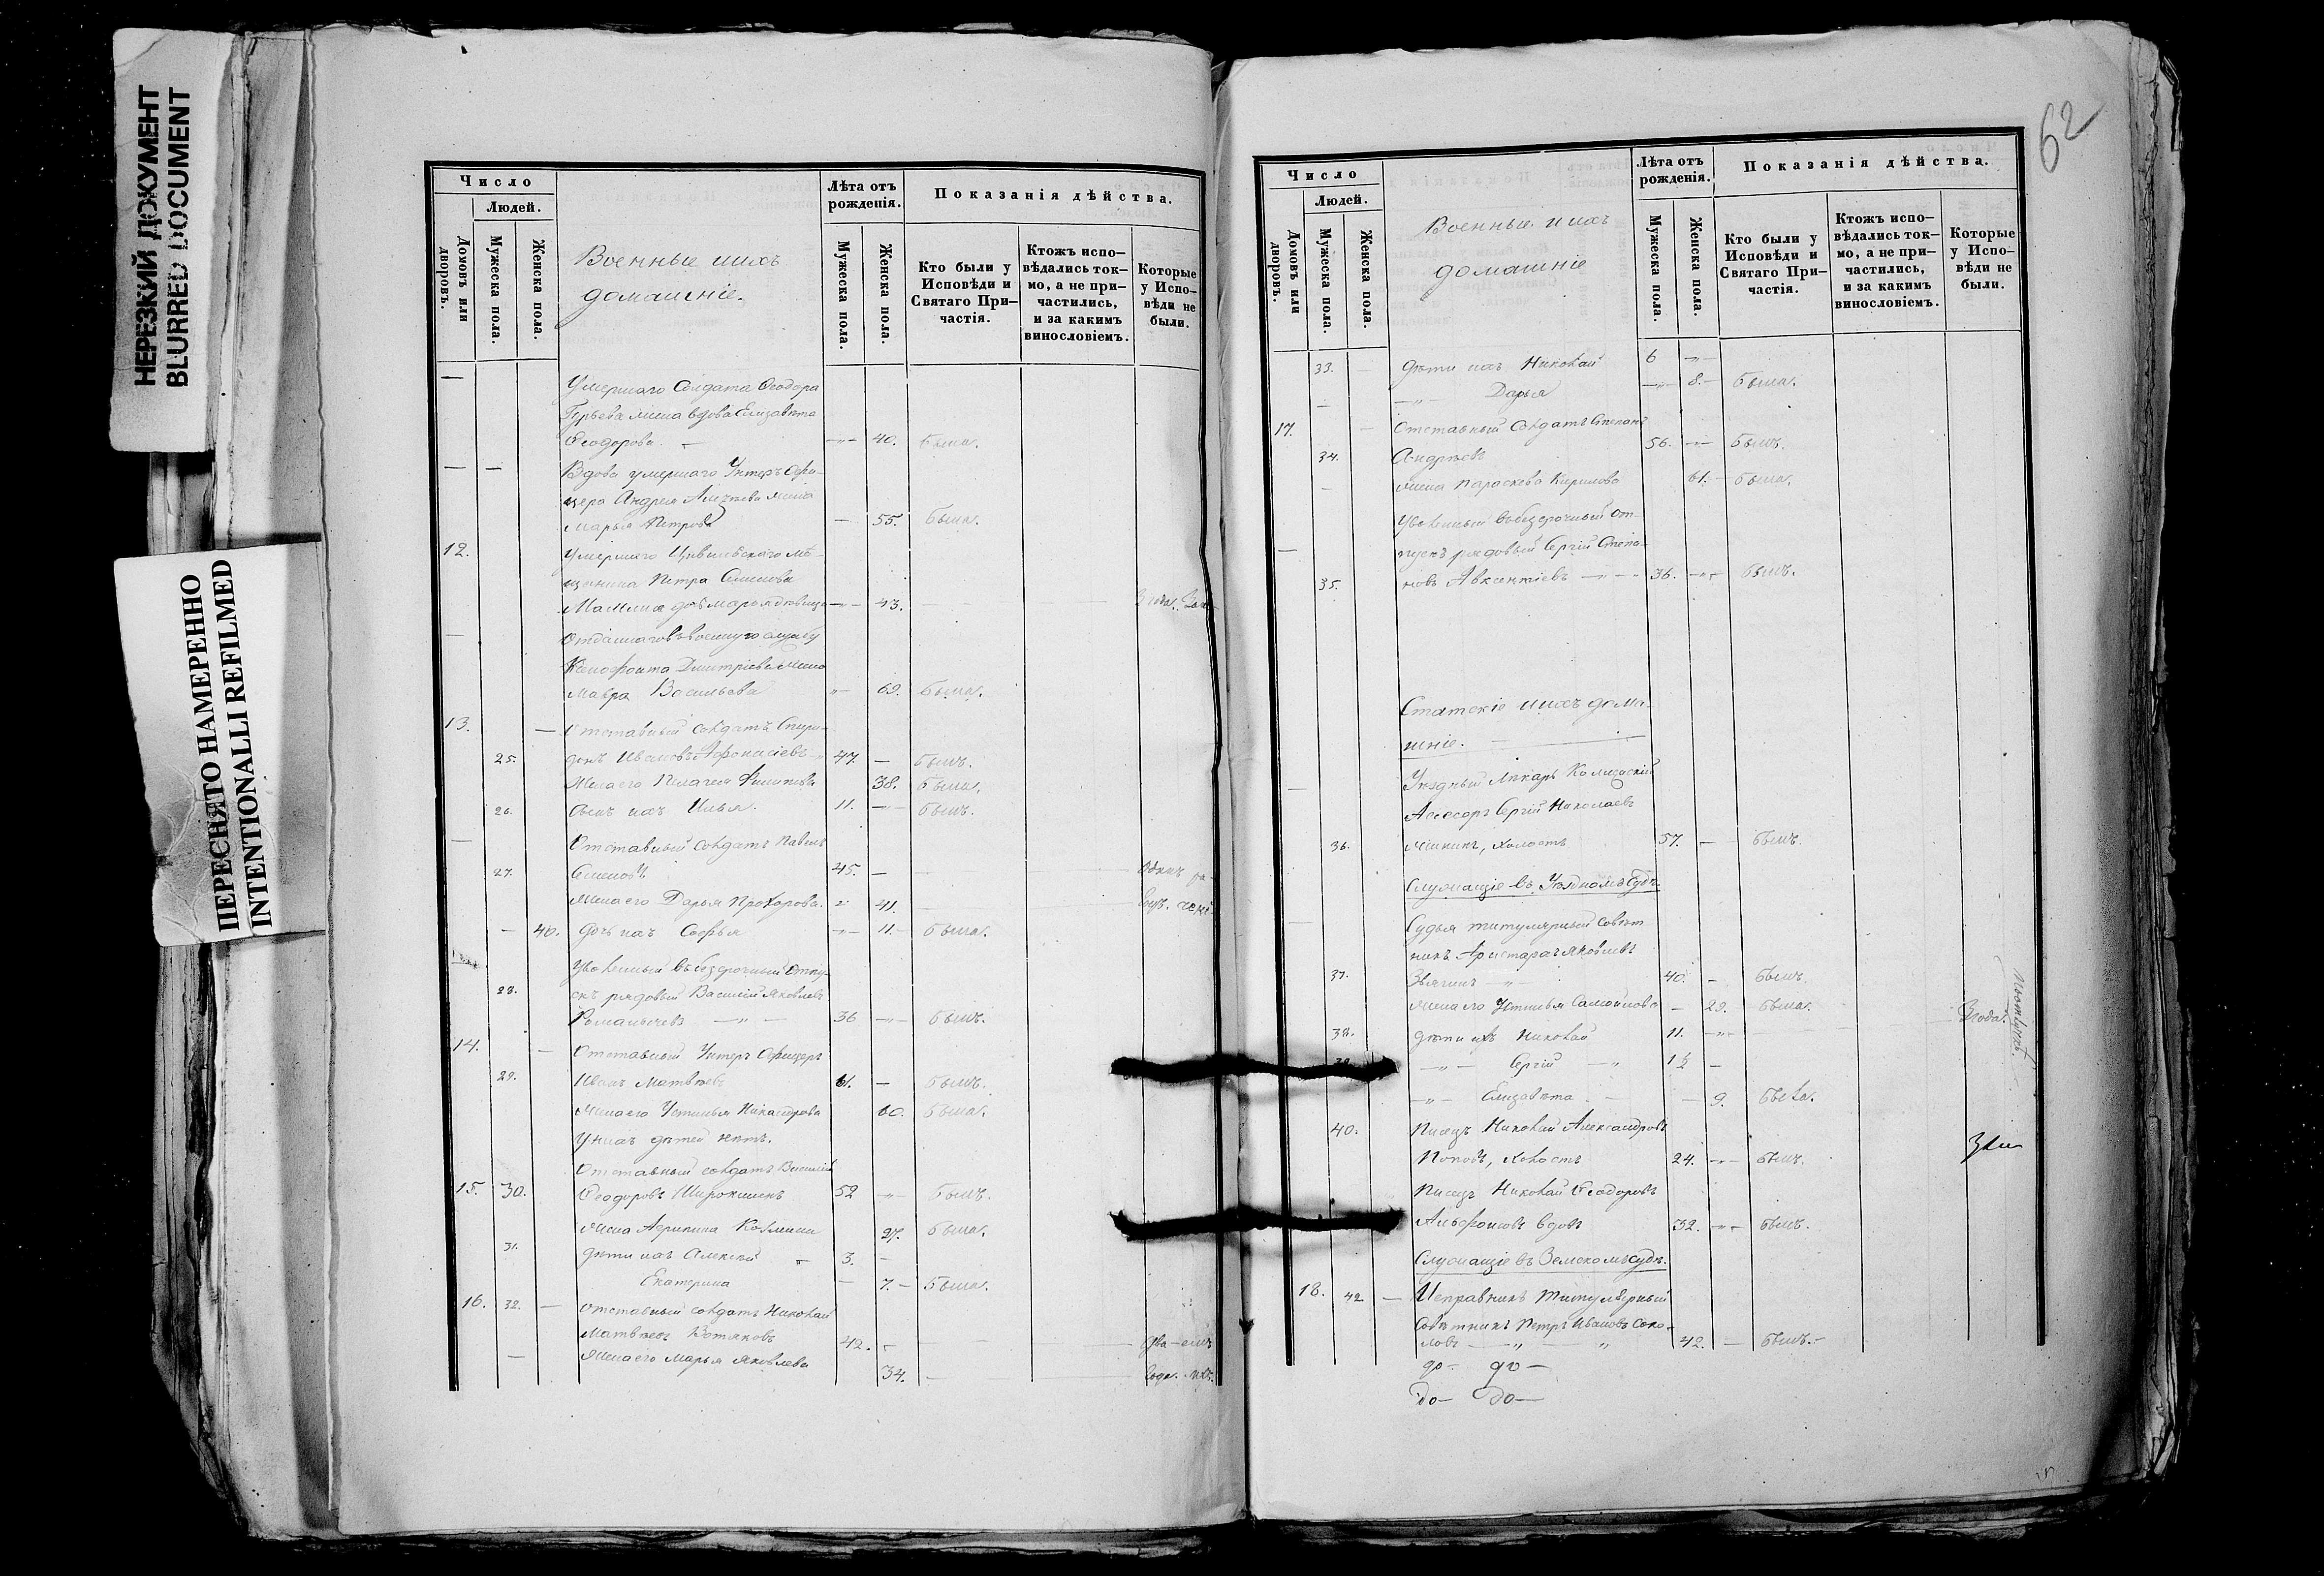 НЕРЕЗКИЙ ДОКУМЕНТ
BLURRED DOCUMENT
ПЕРЕСНЯТО НАМЕРЕННО
INTENTIONALLI REFILMED
Число
Людей.
Домовъ или дворовъ.
Мужеска пола.
Женска пола.
Военные и ихъ
домашніе.
Лѣта отъ
рожденія.
Мужеска пола.
Женска пола.
Показанія дѣйства.
Кто были у
Исповѣди и
Святаго При-
частія.
Ктожъ испо-
вѣдались ток-
мо, а не при-
частились,
и за какимъ
винословіемъ.
Которые
у Испо-
вѣди не
были.
Умершаго Солдата Ѳеодора
Гурьева жена вдова Елизавета
Ѳеодорова — 40. Была.
Вдова умершаго Унтеръ Офи-
цера Андрея жена
Марья Петрова — 55. Была.
12. Умершаго Цивильскаго мѣ-
щанина Петра Семенова
43.
Отданнаго въ военную службу
Ксенофонта Дмитріева жена
Мавра Васильева 69. Была.
13. Отставный солдатъ Спири-
25. донъ Ивановъ Афонасіевъ 47. — Былъ.
Жена его Пелагея Филипова 38. Была.
26. Сынъ ихъ Илья. 11. — Былъ.
Отставный солдатъ Павелъ
27. Семеновъ 45. —
Жена его Дарья Прохорова. 41.
40. Дочь ихъ Софья 11. Была.
Уволенный въ безсрочный отпу-
28. скъ рядовый Василій Яковлевъ
Романычевъ 36 — Былъ.
14. Отставный Унтеръ Офицеръ
29. Иванъ Матвѣевъ 61. — Былъ.
Жена его Устинья 60. Была.
У нихъ дѣтей нѣтъ.
Отставный солдатъ Василій
15. 30. Ѳеодоровъ 52 Былъ.
Жена Агрипина Козмина 27. Была.
31. дѣти ихъ Алексѣй 3. —
Екатерина — 7. — Была.
16. 32. — отставный солдатъ Николай
Матвѣевъ 42. —
Жена его Марья Яковлева 34.
62
Число
Людей.
Домовъ или дворовъ.
Мужеска пола.
Женска пола.
Военные и ихъ
домашніе
Лѣта отъ
рожденія.
Мужеска пола.
Женска пола.
Показанія дѣйства.
Кто были у
Исповѣди и
Святаго При-
частія.
Ктожъ испо-
вѣдались ток-
мо, а не при-
частились,
и за какимъ
винословіемъ.
Которые
у Испо-
вѣди не
были.
33. Дѣти ихъ Николай 6 —
Дарья 8. — Была.
17. Отставный Солдатъ Степанъ
34. Андреевъ 56. — Былъ.
жена Параскева Кирилова 61. — Была.
Уволенный въ безсрочный от-
пускъ рядовый Сергій Степа-
35. новъ Авксентіевъ 36. — Былъ.
Статскіе и ихъ дома-
шніе.
Уѣздный Лѣкарь Колмежскій
Асесоръ Сергій Николаевъ
36. холостъ 57. — Былъ.
Служащіе въ Уѣздномъ Судѣ.
Судья титулярный совѣт
никъ Аристархъ Яковлевъ
37. Звягинъ 40. — Былъ.
жена его Устинья Самойлова — 29. Была.
38. дѣти ихъ Николай 11. 3 года.
Сергій 1½ —
Елизавета — 9. Была.
40. Писецъ Николай Александровъ
Поповъ, холостъ 24. — Былъ.
Писецъ Николай Ѳеодоровъ
вдовъ 32. — Былъ.
Служащіе въ Земскомъ судѣ.
18. 42 — Исправникъ Титулярный
Совѣтникъ Петръ Ивановъ Соко-
ловъ 42. — Былъ. —
до — до —
до — до —